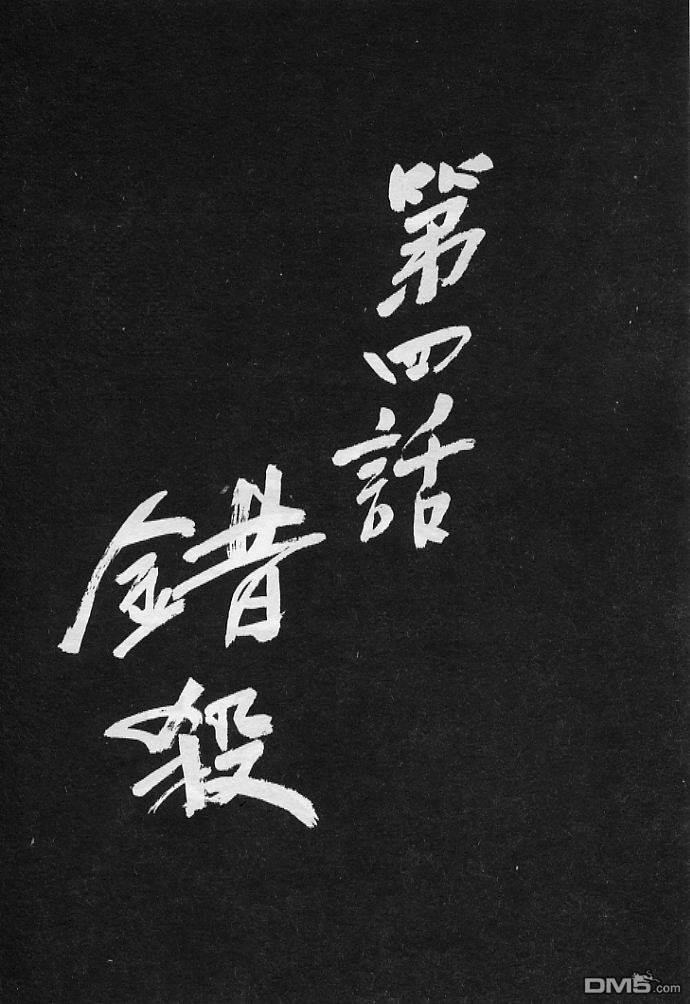 第四話
錯殺
DM5.com